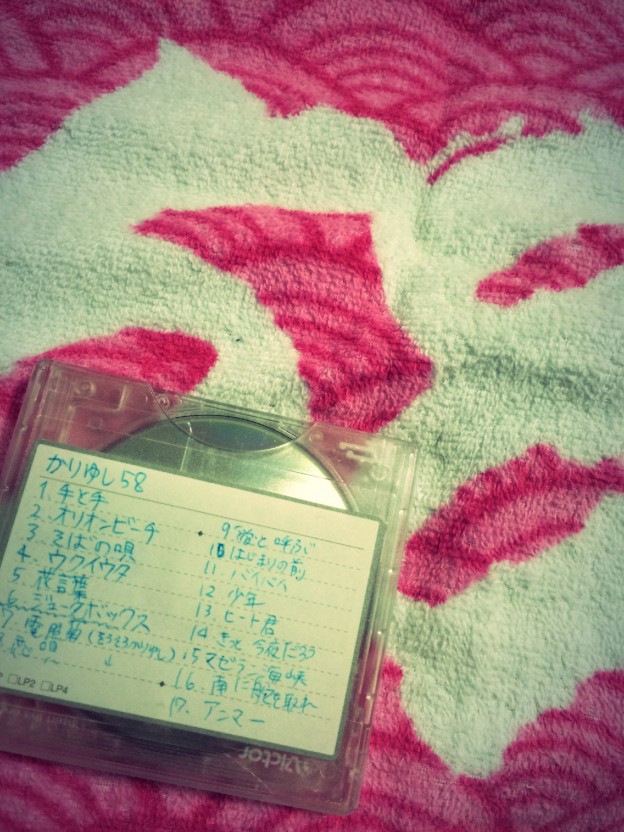 かりゆし58
1. 手と手
2. オリオンビーチ
3 そばの唄
4 ウクイウタ
5 花言葉
ジュークボックス
7 電照菊 (そろそろかりゆし)
↓
恋唄
9 と呼ぶ
10 はじまりの前
11 バイバイ
12 少年
13 ヒート君
14 きっと 今夜だろう
15 マゼラン海峡
16. 南に舵を取れ
17. アンマー
□LP2 □LP4
Victor